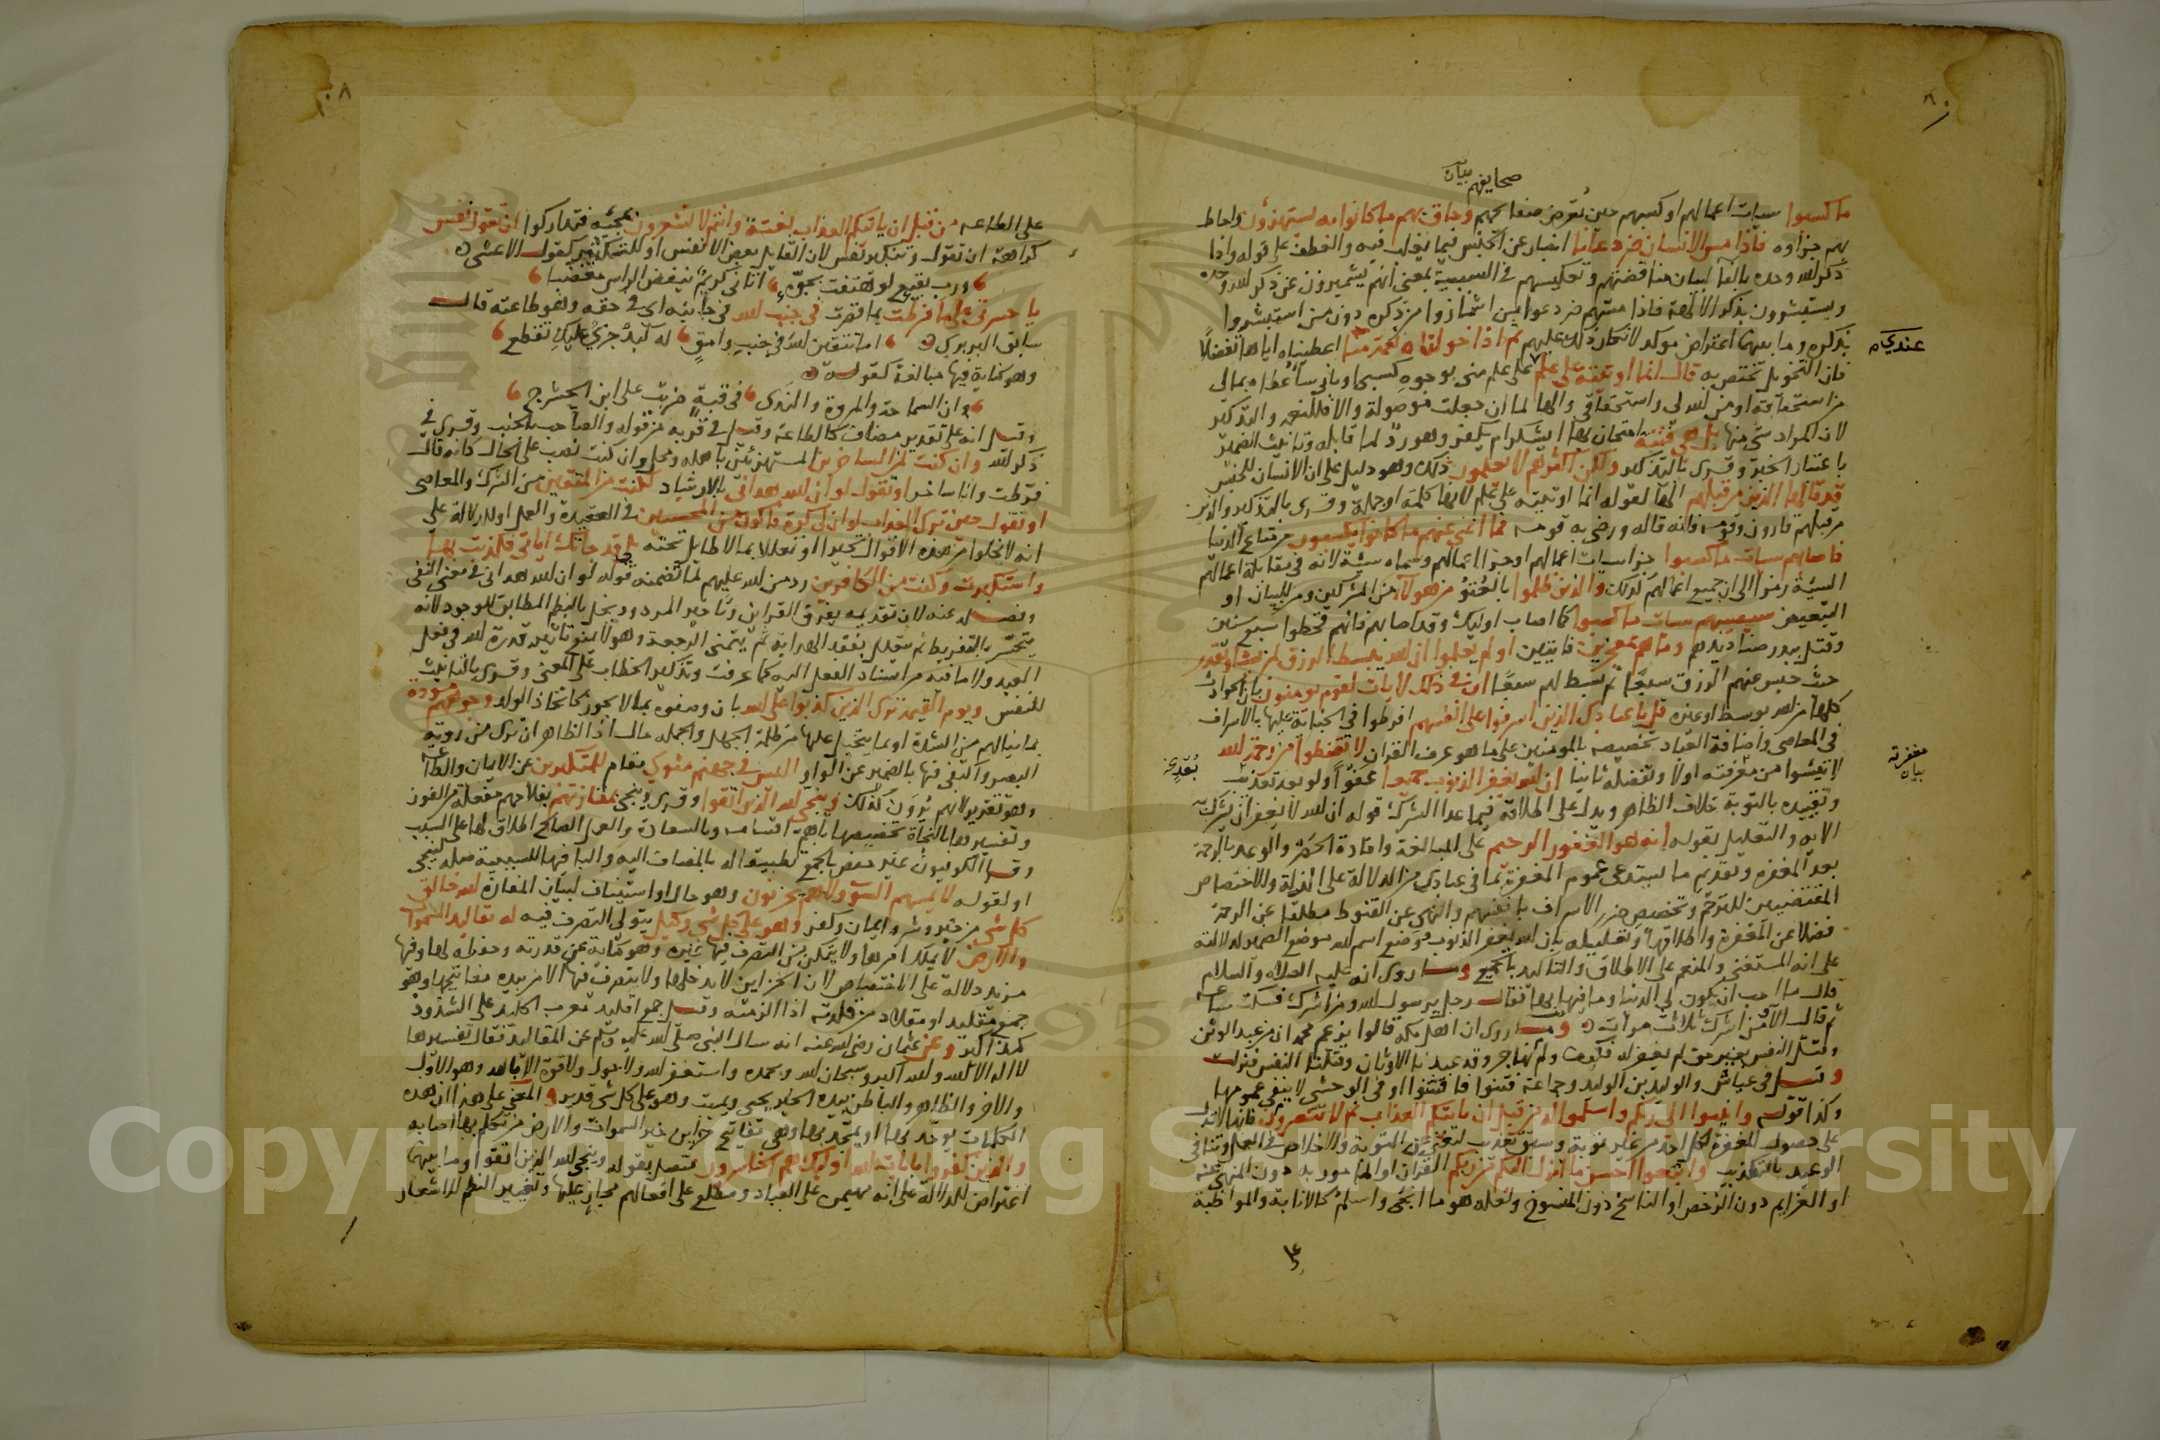 صحايفهم بيان
ما كسبوا سيات اعمالهم او كسبهم حين تعرض صحايفهم وحاق بهم ما كانوا به يستهزؤن واحاط
بهم جزاؤه فاذا مس الانسان ضر دعانا اخبار عن الجنس فيما يغلب فيه والعطف على قوله واذا
ذكر الله وحده بالفا لبيان مناقضتهم وتعكيسهم في السببية بمعنى انهم يشمئزون عن ذكر الله وحده
ويستبشرون بذكر الالهة فاذا مسهم ضر دعوا من اشمازوا من ذكره دون من استبشروا
بذكره وما بينهما اعتراض موكد لانكار ذلك عليهم ثم اذا خولناه نعمة منا اعطيناه اياها تفضلا
عندكم
فان التخويل مختص به قال انما اوتيته على علم على علم مني بوجوه كسبه او باني ساعطاه بمالي
من استحقاقه او من الله لي واستحقاقي والها لما ان جعلت موصولة والا فللنعمة والتذكير
لان المراد شي منها بل هي فتنة امتحان له ايشكر ام يكفر وهو رد لما قاله وتانيث الضمير
باعتبار الخبر وقرى بالتذكير ولكن اكثرهم لا يعلمون ذلك وهو دليل على ان الانسان للجنس
قد قالها الذين من قبلهم الها لقوله انما اوتيته على علم لانها كلمة او جملة وقرى بالتذكير والذين
من قبلهم قارون وقومه فانه قاله ورضي به قومه فما اغنى عنهم ما كانوا يكسبون من متاع الدنيا
فاصابهم سيات ما كسبوا جزا سيات اعمالهم او جزا اعمالهم وسماه سيئة لانه في مقابلة اعمالهم
السيئة رمزا الى ان جميع اعمالهم كذلك والذين ظلموا بالعتو من هولا من المشركين ومن للبيان او
التبعيض سيصيبهم سيات ما كسبوا كما اصاب اوليك وقد اصابهم فانهم قحطوا سبع سنين
وقتل ببدر صناديدهم وما هم بمعجزين فايتين اولم يعلموا ان الله يبسط الرزق لمن يشا ويقدر
حيث حبس عنهم الرزق سبعا ثم بسط لهم سبعا ان في ذلك لايات لقوم يومنون بان الحوادث
كلها من الله بوسط او غيره قل يا عبادي الذين اسرفوا على انفسهم افرطوا في الجناية عليها بالاسراف
في المعاصي واضافة العباد تخصيصه بالمومنين على ما هو عرف القران لا تقنطوا من رحمة الله
مغفرته بيان
لا تيئسوا من مغفرته اولا وتفضله ثانيا ان الله يغفر الذنوب جميعا عفوا ولو بعد تعذيب
وتقييده بالتوبة خلاف الظاهر ويدل على اطلاقه فيما عدا الشرك قوله ان الله لا يغفر ان يشرك به
الاية والتعليل بقوله انه هو الغفور الرحيم على المبالغة وافادة الحصر والوعد بالرحمة
بعد المغفرة وتقديم ما يستدعى عموم المغفرة مما في عبادي من الدلالة على الذلة والاختصاص
المقتضيين للترحم وتخصيص ضرر الاسراف بانفسهم والنهي عن القنوط مطلقا عن الرحمة
فضلا عن المغفرة واطلاقها وتعليله بان الله يغفر الذنوب ووضع اسم الله موضع الضمير لدلالته
على انه المستغني والمنعم على الاطلاق والتاكيد بالجميع وما روى انه عليه الصلاة والسلام
قال ما احب ان يكون لي الدنيا وما فيها بها فقال رجل يرسول الله ومن اشرك فسكت ساعة
ثم قال الا ومن اشرك ثلاث مرات وما روى ان اهل مكة قالوا يزعم محمد ان من عبد الوثن
وقتل النفس بغير حق لم يغفر له فكيف ولم نهاجر وقد عبدنا الاوثان وقتلنا النفس فنزلت
وقيل في عياش والوليد بن الوليد وجماعة فتنوا فافتتنوا او في الوحشي لا ينفي عمومها
وكذا قوله وانيبوا الى ربكم واسلموا له من قبل ان ياتيكم العذاب ثم لا تنصرون فانها لا تدل
على حصول المغفرة لكل احد من غير توبة وسبق تعذيب لتغني عن التوبة والاخلاص في العمل وتنافي
الوعيد بالتعذيب واتبعوا احسن ما انزل اليكم من ربكم القران او المامور به دون المنهي عنه
او العزايم دون الرخص او الناسخ دون المنسوخ ولعله هو ما انجى واسلم كالانابة والمواظبة
على الطاعة من قبل ان ياتيكم العذاب بغتة وانتم لا تشعرون بمجئه فتداركوا ان تقول نفس
كراهة ان تقول وتنكير نفس لان القايل بعض الانفس او للتكثير كقول الاعشى
ورب بقيع لو هتفت بجوه اتاني كريم ينفض الراس مغضبا
يا حسرتي على ما فرطت بما قصرت في جنب الله في جانبه اي في حقه وهو طاعته قال
سابق البربري اما تتقين الله في جنب وامق له كبد حرى عليك تقطع
وهو كناية فيها مبالغة كقوله
ان السماحة والمروة والندى في قبة ضربت على ابن الحشرج
وقيل انه على تقدير مضاف كالطاعة وقيل في قربه من قوله والصاحب بالجنب وقرى في
ذكر الله وان كنت لمن الساخرين المستهزئين باهله ومحل وان كنت نصب على الحال كانه قال
فرطت وانا ساخر او تقول لو ان الله هداني بالارشاد لكنت من المتقين من الشرك والمعاصي
او تقول حين ترى العذاب لو ان لي كرة فاكون من المحسنين في العقيدة والعمل او للدلالة على
انه لا يخلوا من هذه الاقوال تحيرا او تعللا بما لا طايل تحته بلى قد جاتك اياتي فكذبت بها
واستكبرت وكنت من الكافرين رد من الله عليهم لما تضمنه قوله لو ان الله هداني في معنى النفي
وفصله عنه لان تقديمه يفرق القراين وتاخير المردود يخل بالنظم المطابق للوجود لانه
يتحسر بالتفريط ثم يتعلل بفقد الهداية ثم يتمنى الرجعة وهو لا يمنع تاثير قدرة الله في فعل
العبد ولا ما فيه من اسناد الفعل اليه كما عرفت وتذكير الخطاب على المعنى وقرى بالتانيث
للنفس ويوم القيمة ترى الذين كذبوا على الله بان وصفوه بما لا يجوز كاتخاذ الولد وجوههم مسودة
بما ينالهم من الشدة او بما يتخيل عليها من ظلمة الجهل والجملة حال اذ الظاهر ان ترى من روية
البصر واكتفي فيها بالضمير عن الواو اليس في جهنم مثوى مقام للمتكبرين عن الايمان والطاعة
وهو تقرير لانهم يرون كذلك وينجي الله الذين اتقوا وقرى وينجي بمفازتهم بفلاحهم مفعلة من الفوز
وتفسيرها بالنجاة تخصيصها باهم اقسامه وبالسعادة والعمل الصالح اطلاق لها على السبب
وقرا الكوفيون غير حفص بالجمع تطبيقا له بالمضاف اليه والبا فيها للسببية صلة لينجي
او لقوله لا يمسهم السوء ولا هم يحزنون وهو حال او استيناف لبيان المفازة الله خالق
كل شي من خير وشر وايمان وكفر وهو على كل شي وكيل يتولى التصرف فيه له مقاليد السموات
والارض لا يملك امرها ولا يتمكن من التصرف فيها غيره وهو كناية عن قدرته وحفظه لها وفيها
مزيد دلالة على الاختصاص لان الخزاين لا يدخلها ولا يتصرف فيها الا من بيده مفاتيحها وهو
جمع مقليد او مقلاد من قلدته اذا الزمته وقيل جمع اقليد معرب اكليد على الشذوذ
كمذاكير وعن عثمان رضي الله عنه انه سال النبي صلى الله عليه وسلم عن المقاليد فقال تفسيرها
لا اله الا الله والله اكبر وسبحان الله وبحمده واستغفر الله ولا حول ولا قوة الا بالله هو الاول
والاخر والظاهر والباطن بيده الخير يحيي ويميت وهو على كل شي قدير والمعنى على هذا ان هذه
الكلمات يوحد بها او يمجد بها وهي مفاتيح خزاين خير السموات والارض من تكلم بها اصابه
والذين كفروا بايات الله اوليك هم الخاسرون متصل بقوله وينجي الله الذين اتقوا وما بينهما
اعتراض للدلالة على انه مهيمن على العباد ومطلع على افعالهم مجاز عليها وتغيير النظم للاشعار